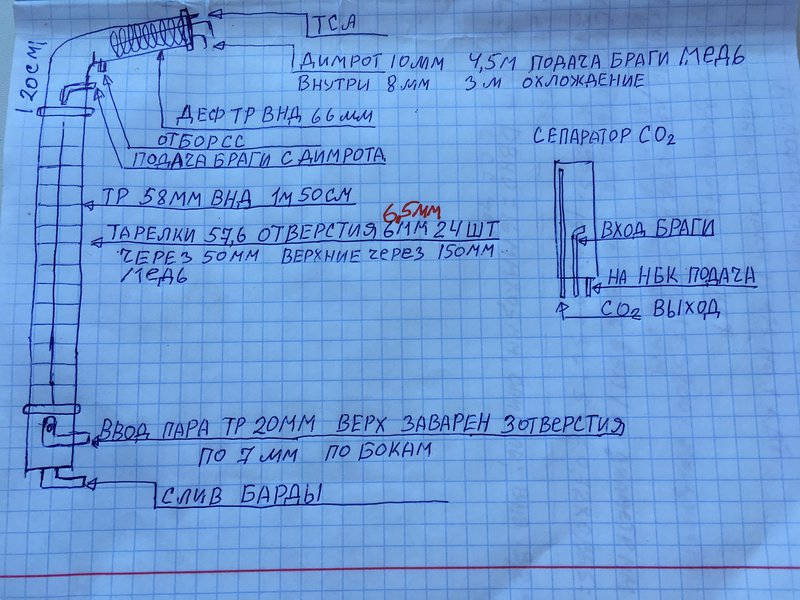 ТСА
ДИМРОТ 10ММ 4,5М ПОДАЧА БРАГИ МЕДЬ
ВНУТРИ 8ММ 3М ОХЛОЖДЕНИЕ
20СМ
ДЕФ ТР ВНД 66ММ
ОТБОР СС
ПОДАЧА БРАГИ С ДИМРОТА
СЕПАРАТОР СО2
ТР 58ММ ВНД 1М 50СМ
6,5ММ
ТАРЕЛКИ 57,6 ОТВЕРСТИЯ 6ММ 24ШТ
ЧЕРЕЗ 50ММ ВЕРХНИЕ ЧЕРЕЗ 150ММ
МЕДЬ
ВХОД БРАГИ
НА НБК ПОДАЧА
СО2 ВЫХОД
ВВОД ПАРА ТР 20ММ ВЕРХ ЗАВАРЕН 3 ОТВЕРСТИЯ
ПО 7ММ ПО БОКАМ
СЛИВ БАРДЫ